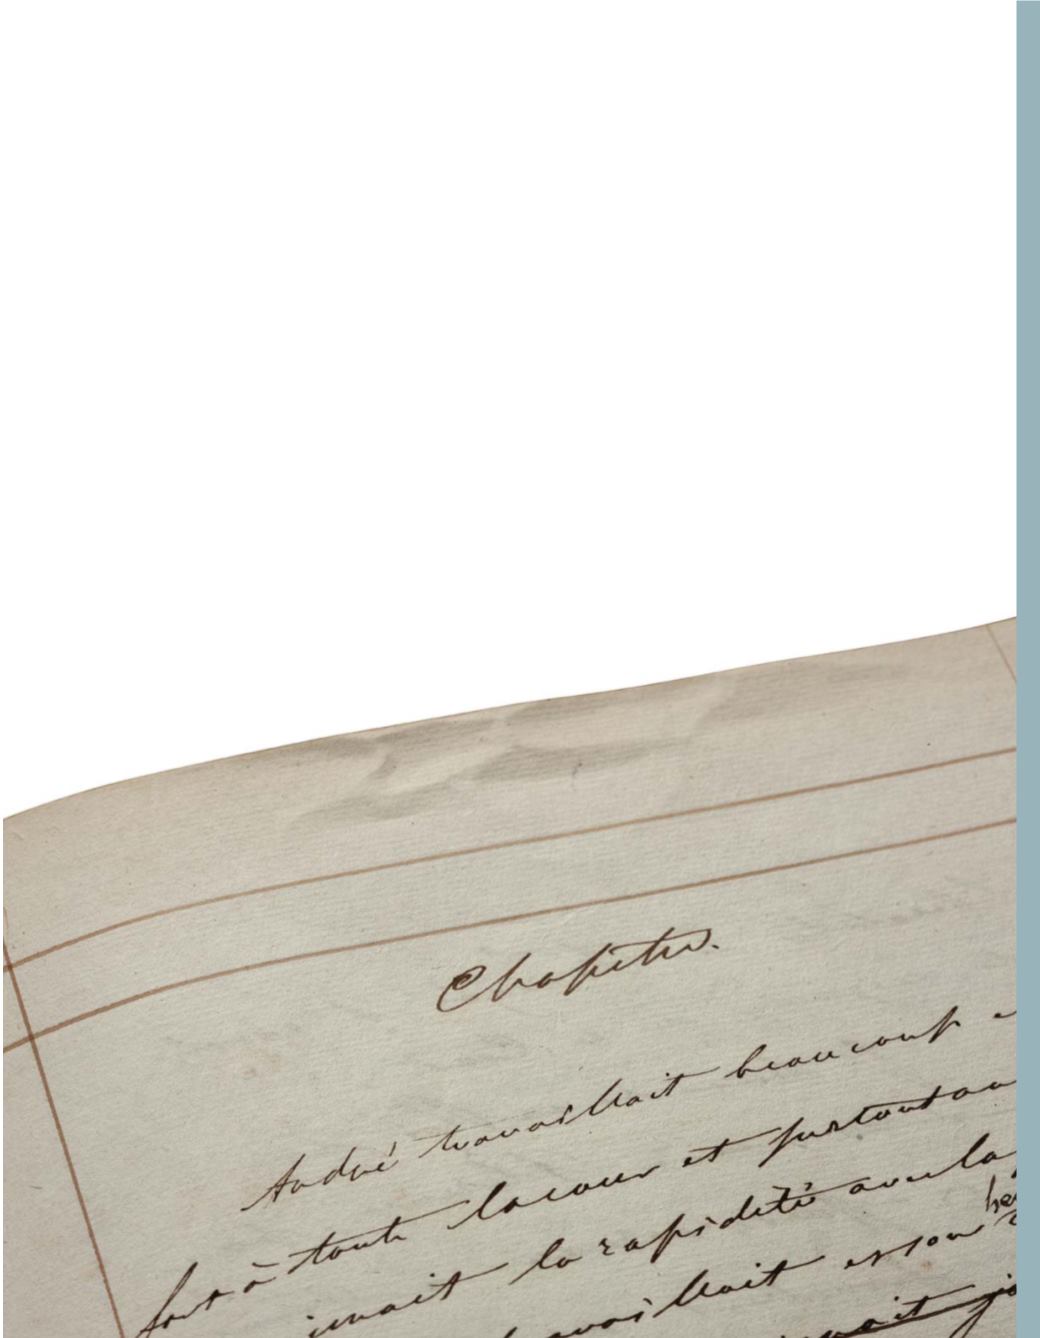 Chapitre.
André travaillait beaucoup
fort à toute la cour et surtout
la rapidité avec la
et son